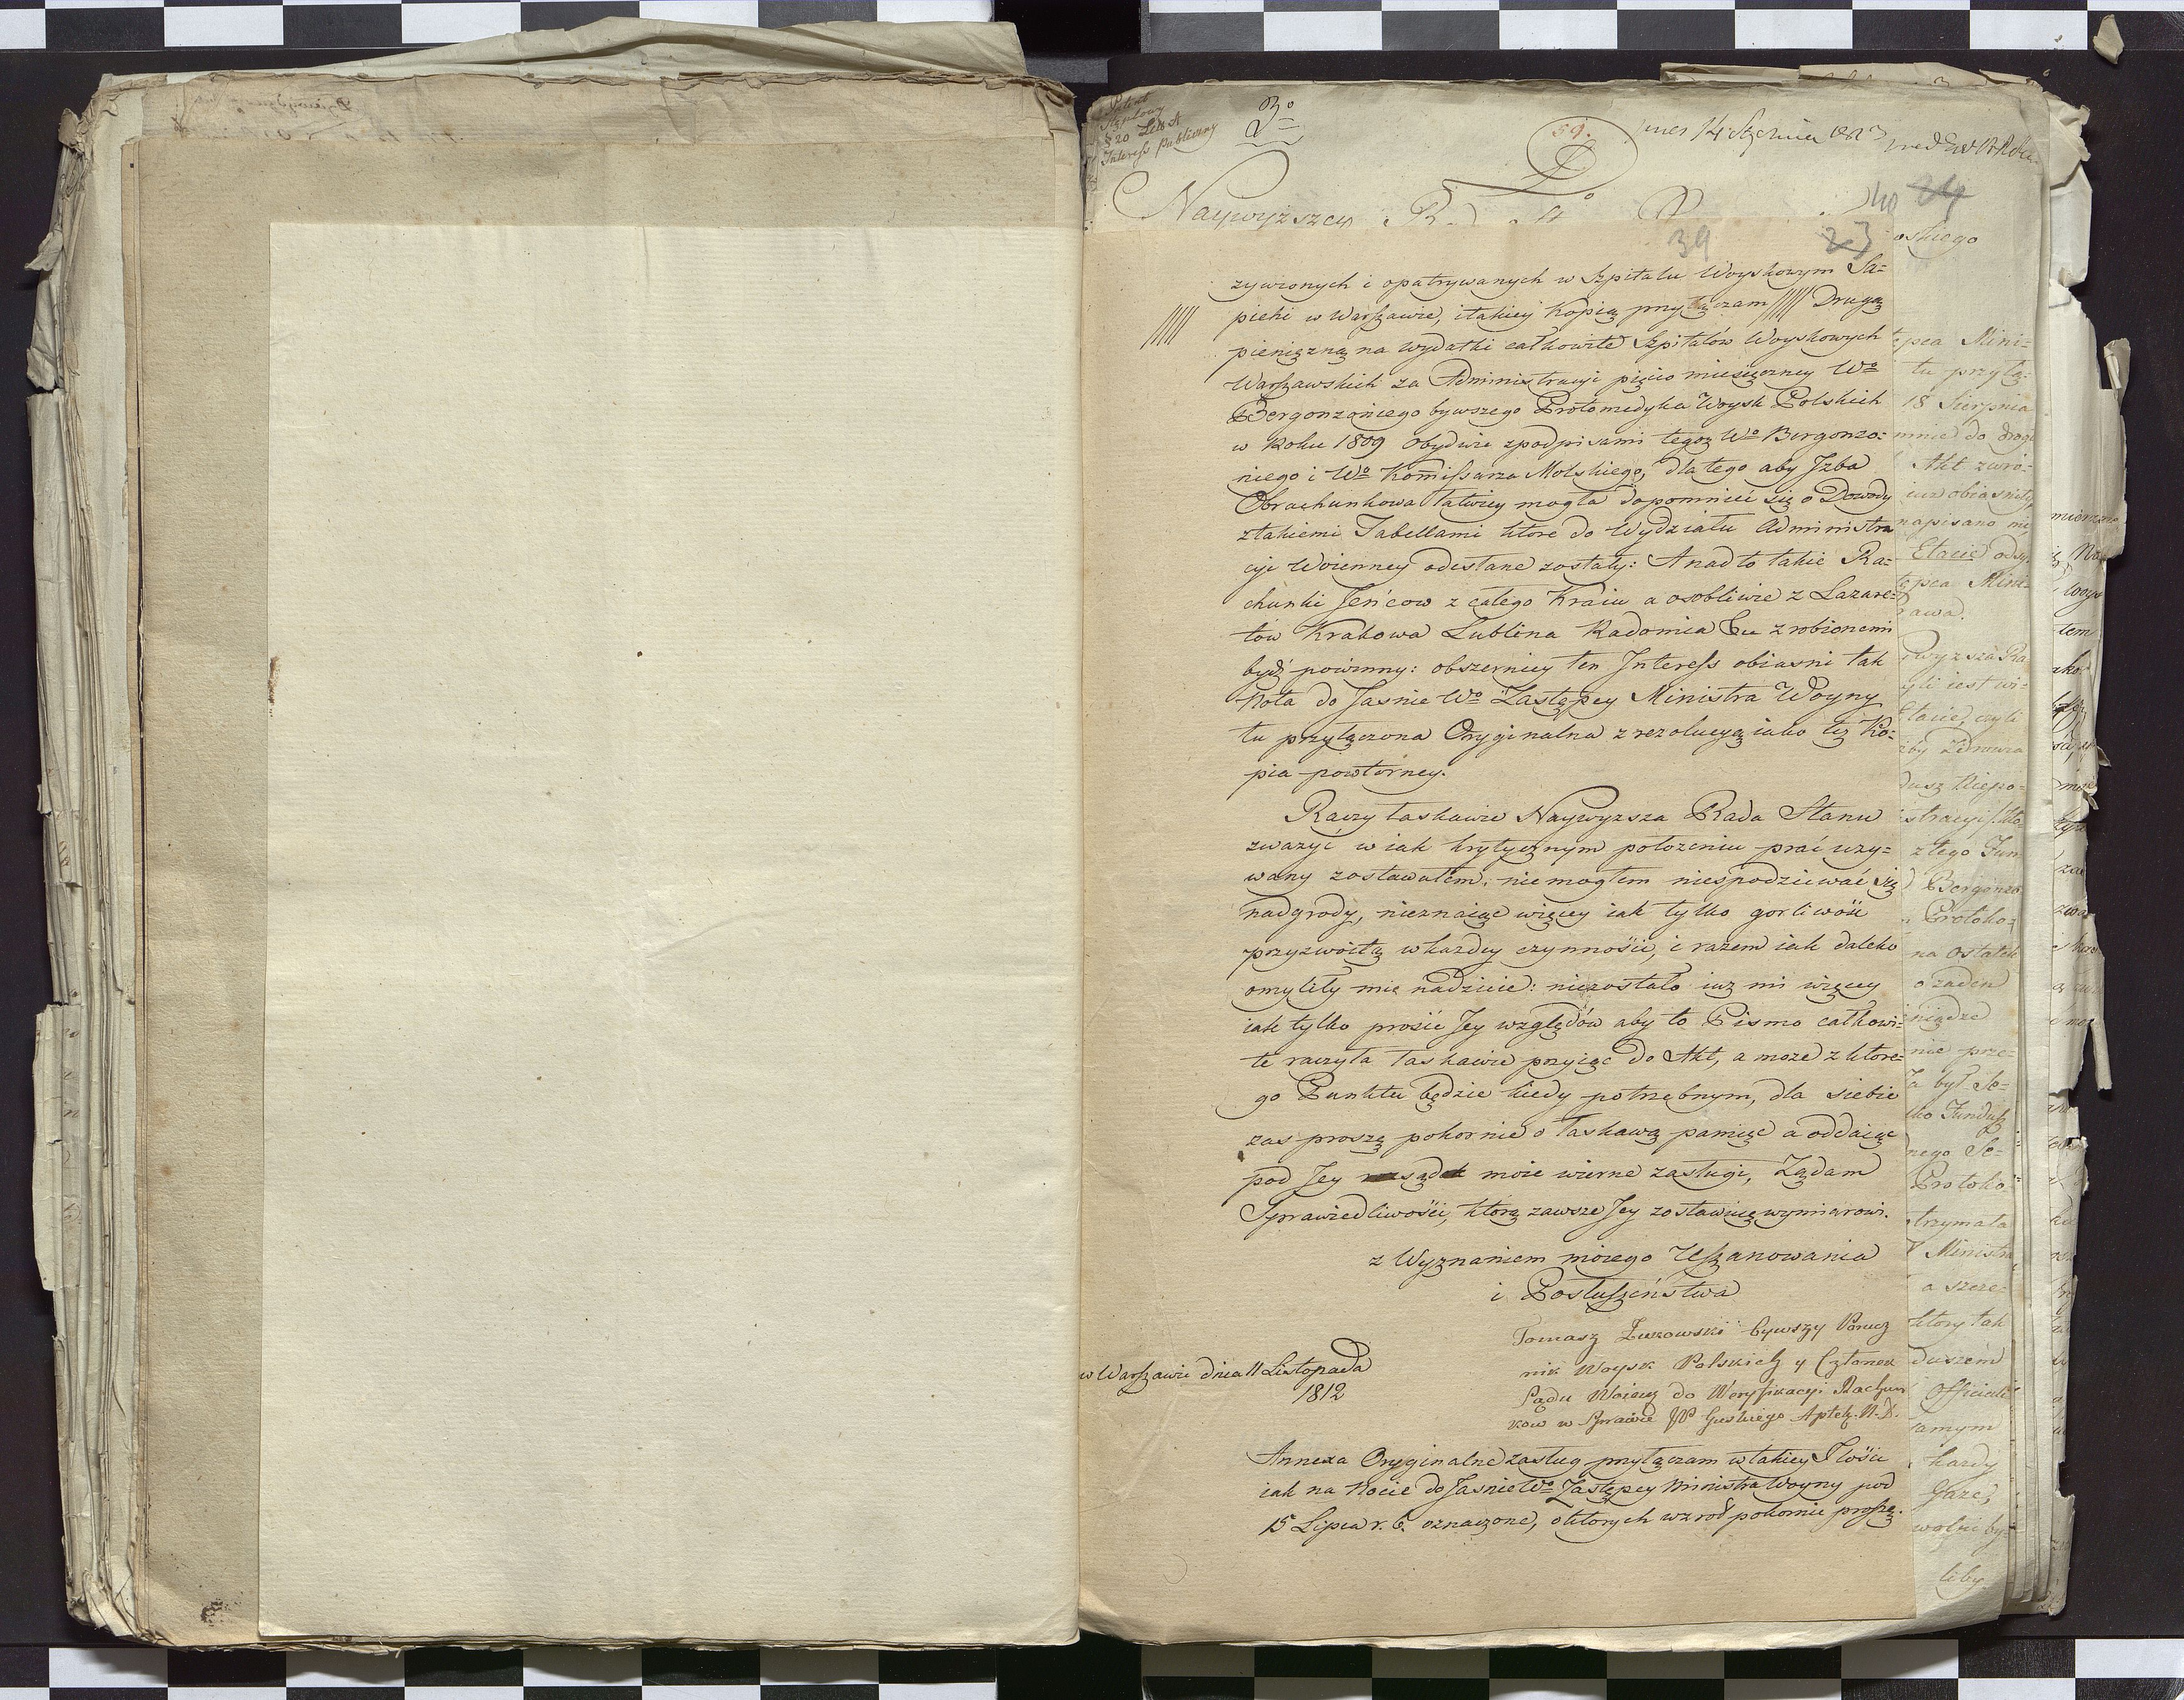 Stęplowy
§ 20 Lit. A
Interess Publiczny
3o
59.
14 Stycznia 1813
Naywyższey
40 24
39 23
oskiego
żywionych i opatrywanych w Szpitalu Woyskowym Sa=
piehi w Warszawie, itakiey Kopią przyłączam ///// Drugą
pieniężną na wydatki całkowite Szpitalów Woyskowych
Warszawskich za Administracyi pięcio miesięczney Wo
Bergonzoniego bywszego Protomedyka Woysk Polskich
w Roku 1809 obydwie zpodpisami tegoż Wo Bergonzo=
niego i Wo Kommissarza Molskiego, dla tego aby Jzba
Obrachunkowa łatwiey mogła dopomnieć się o Dowody
ztakiemi Tabellami które do Wydziału Administra
cyi Woienney odesłane zostały: A nad to takie Ra=
chunki Jeńcow z całego Kraiu a osobliwie z Lazare=
tów Krakowa Lublina Radomia &c zrobionemi
bydź powinny: obszerniey ten Interess obiasni tak
Nota do Jasnie Wo Zastępcy Ministra Woyny
tu przyłączona Oryginalna z rezolucyą iako też Ko=
pia powtórney.
Raczy łaskawie Naywyzsza Rada Stanu
zważyć w iak krytycznym położeniu prać uzy=
wany zostawałem, niemogłem niespodziewać się
nadgrody, nieznaiąc więcey iak tylko gorliwość
przyzwoitą wkażdey czynności, i razem iak daleko
omyliły mię nadzieie: niezostało iuż mi więcey
iak tylko prosić Jey względów aby to Pismo całkowi=
te raczyła łaskawie przyiąć do Akt, a może z które=
go Punktu będzie kiedy potrzebnym, dla siebie
zas proszę pokornie o łaskawą pamięć a oddaiąc
pod Jey rozsądek moie wierne zasługi, Żądam
Sprawiedliwości, którą zawsze Jey zostawię wymiarowi.
z Wyznaniem moiego Uszanowania
i Posłuszeństwa
Tomasz Żurowski bywszy Porucz
nik Woysk Polskich y Członek
Sądu Woien: do Weryfikacyi Rachun
kow w Sprawie JP Guskiego Aptek. N. D.
w Warszawie dnia 11 Listopada
1812
Annexa Oryginalne zasług przyłączam w takiey Ilości
iak na Nocie do Jasnie Wo Zastępcy Ministra Woyny pod
15 Lipca r. b. oznaczone, o których wzrod pokornie proszę.
tępca Mini=
tu przyłą=
18 Sierpnia
mnie do drogi
Akt zwró=
napisano
Etacie
tępca Mini=
Protoko=
na ostatek
o żaden
eniądze
nie prze=
ko Fundusz
nego
Protoko=
trzymała
Ministra
a szcze=
który tak
duszem
Officiali
samym
kazdy
Gaże,
liby